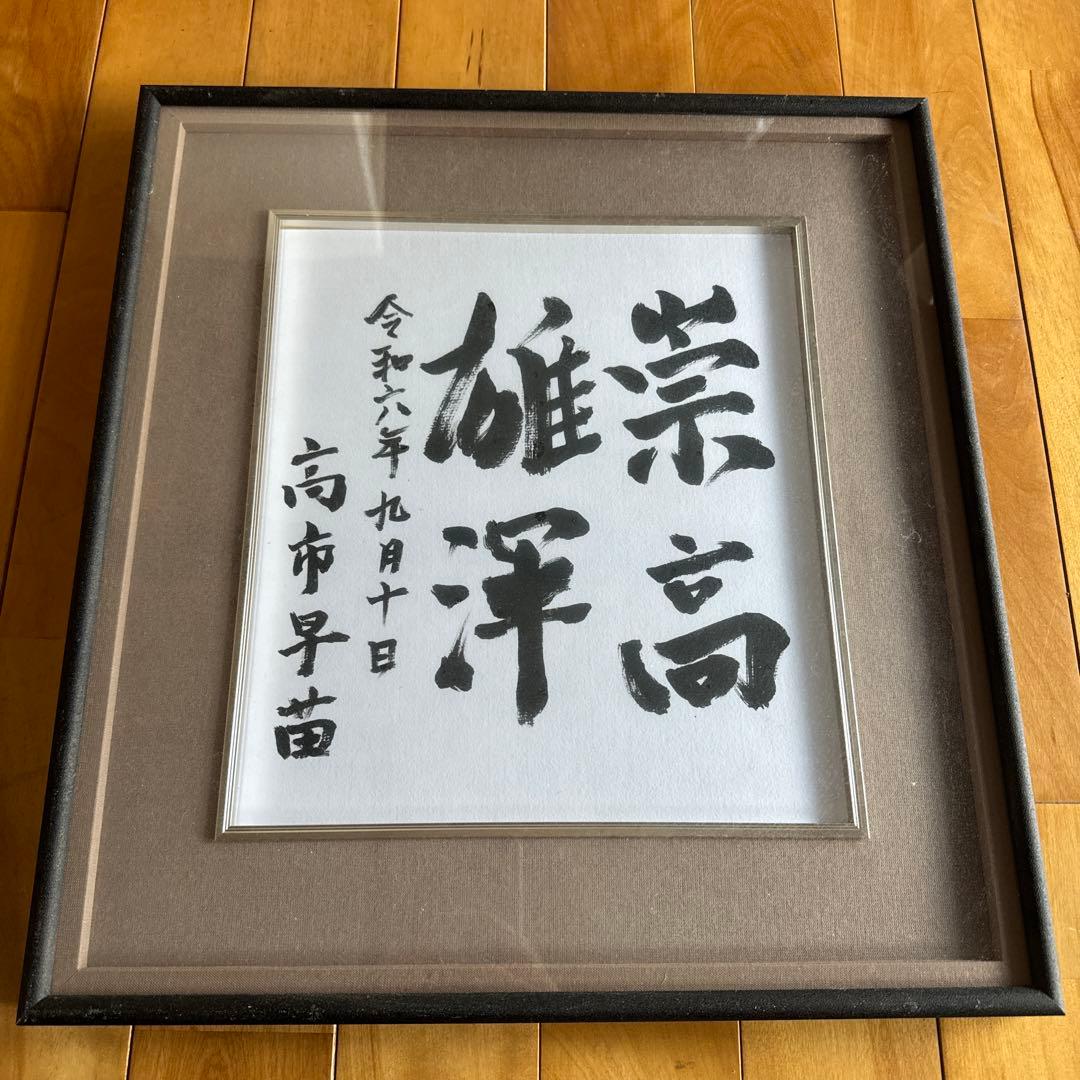 崇高
雄渾
令和六年九月十日
高市早苗